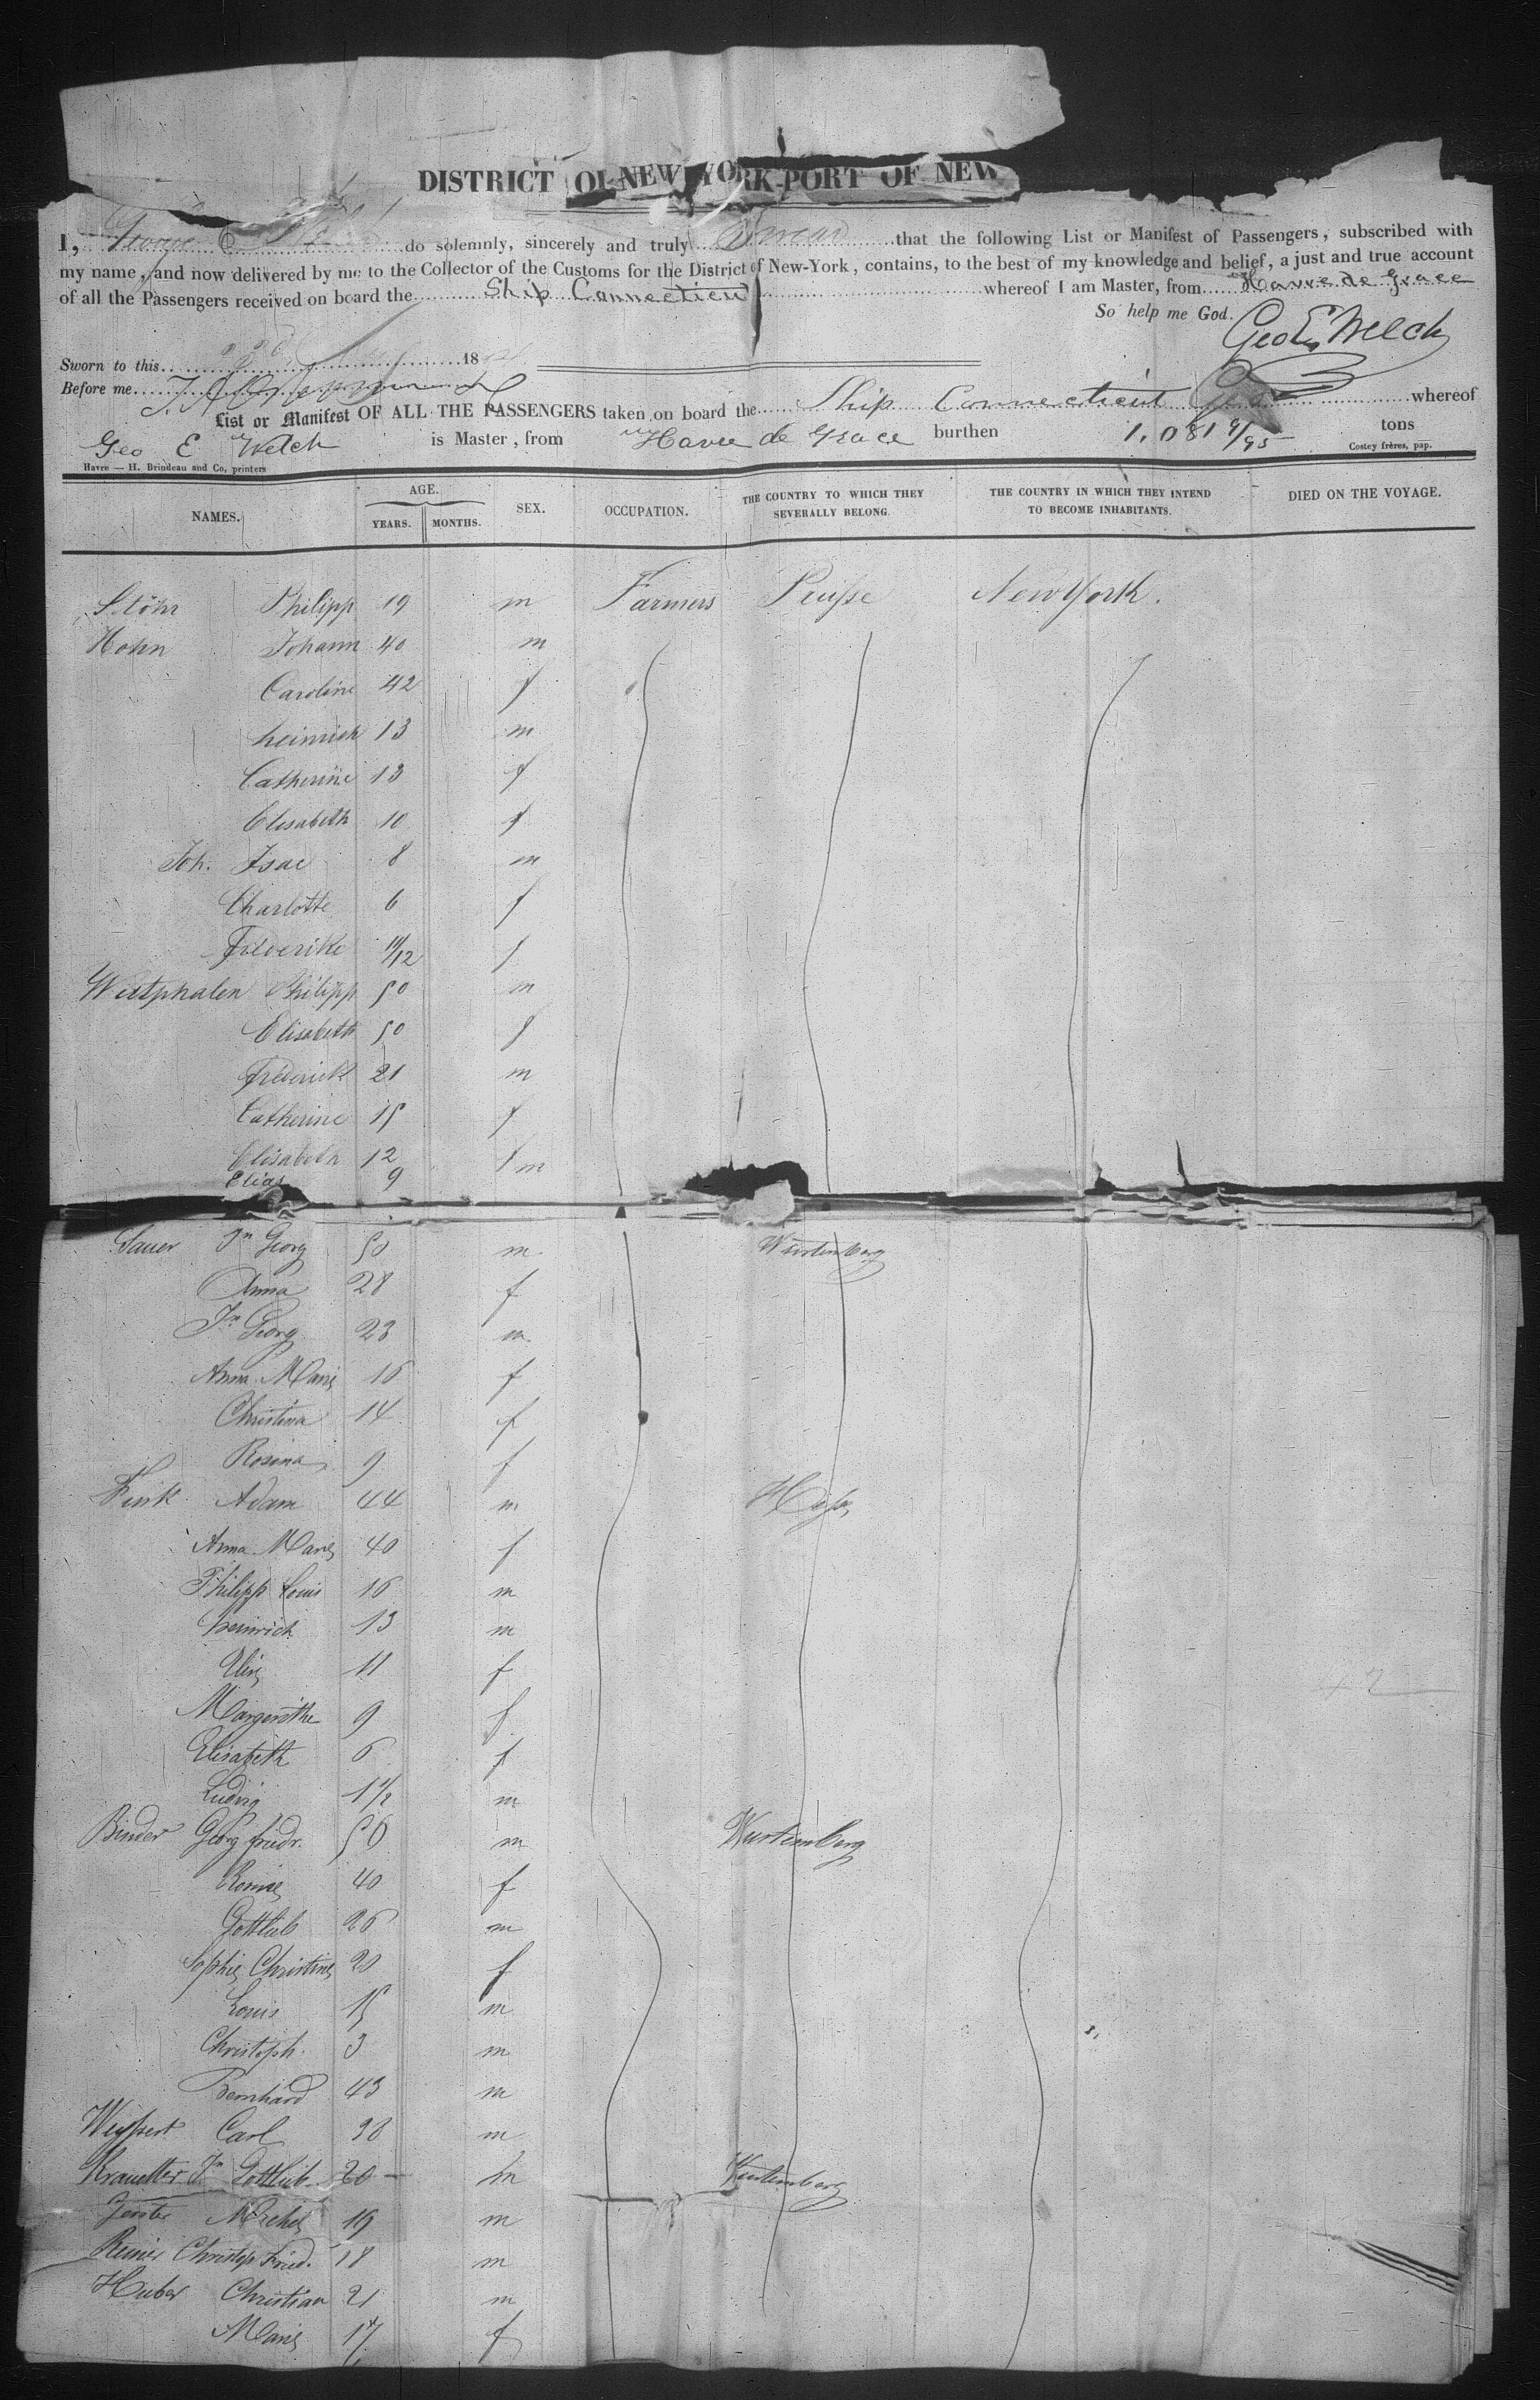 DISTRICT OF NEW YORK-PORT OF NEW
I, George E Welch do solemnly, sincerely and truly Swear that the following List or Manifest of Passengers, subscribed with
my name, and now delivered by me to the Collector of the Customs for the District of New-York, contains, to the best of my knowledge and belief, a just and true account
of all the Passengers received on board the Ship Connecticut whereof I am Master, from Havre de Grace
So help me God.
Geo E Welch
Sworn to this 18
Before me
List or Manifest OF ALL THE PASSENGERS taken on board the Ship Connecticut whereof
Geo E Welch is Master, from Havre de Grace burthen 1.081 9/95 tons
Havre — H. Brindeau and Co, printers
Costey frères, pap.
NAMES. AGE. YEARS. MONTHS. SEX. OCCUPATION. THE COUNTRY TO WHICH THEY SEVERALLY BELONG. THE COUNTRY IN WHICH THEY INTEND TO BECOME INHABITANTS. DIED ON THE VOYAGE.
Stöhr Philipp 19 m Farmers Prusse New York.
Hohn Johann 40 m
Caroline 42 f
heinrich 13 m
Catherine 13 f
Elisabeth 10 f
Joh. Isac 8 m
Charlotte 6 f
Frederike 11/12 f
Westphalen Philipp 50 m
Elisabeth 50 f
Frederick 21 m
Catherine 15 f
Elisabeth 12 f
Elias 9 m
Sauer Jn Georg 50 m Wurtemberg
Anna 28 f
Jn Georg 23 m
Anna Marie 16 f
Christina 14 f
Rosina 9 f
Fink Adam 44 m Hesse
Anna Marie 40 f
Philipp Louis 16 m
heinrich 13 m
Elise 11 f
Margarethe 9 f
Elisabeth 6 f
Ludwig 1 1/2 m
Binder Georg friedr. 50 m Wurtemberg
Rosine 40 f
Gottlieb 26 m
Sophie Christine 20 f
Louis 15 m
Christoph 3 m
Bernhard 43 m
Weippert Carl 38 m
Krauetter Jn Gottlieb 20 m Wurtemberg
Michel 19 m
Reiner Christoph Fried. 18 m
Huber Christian 21 m
Marie 17 f